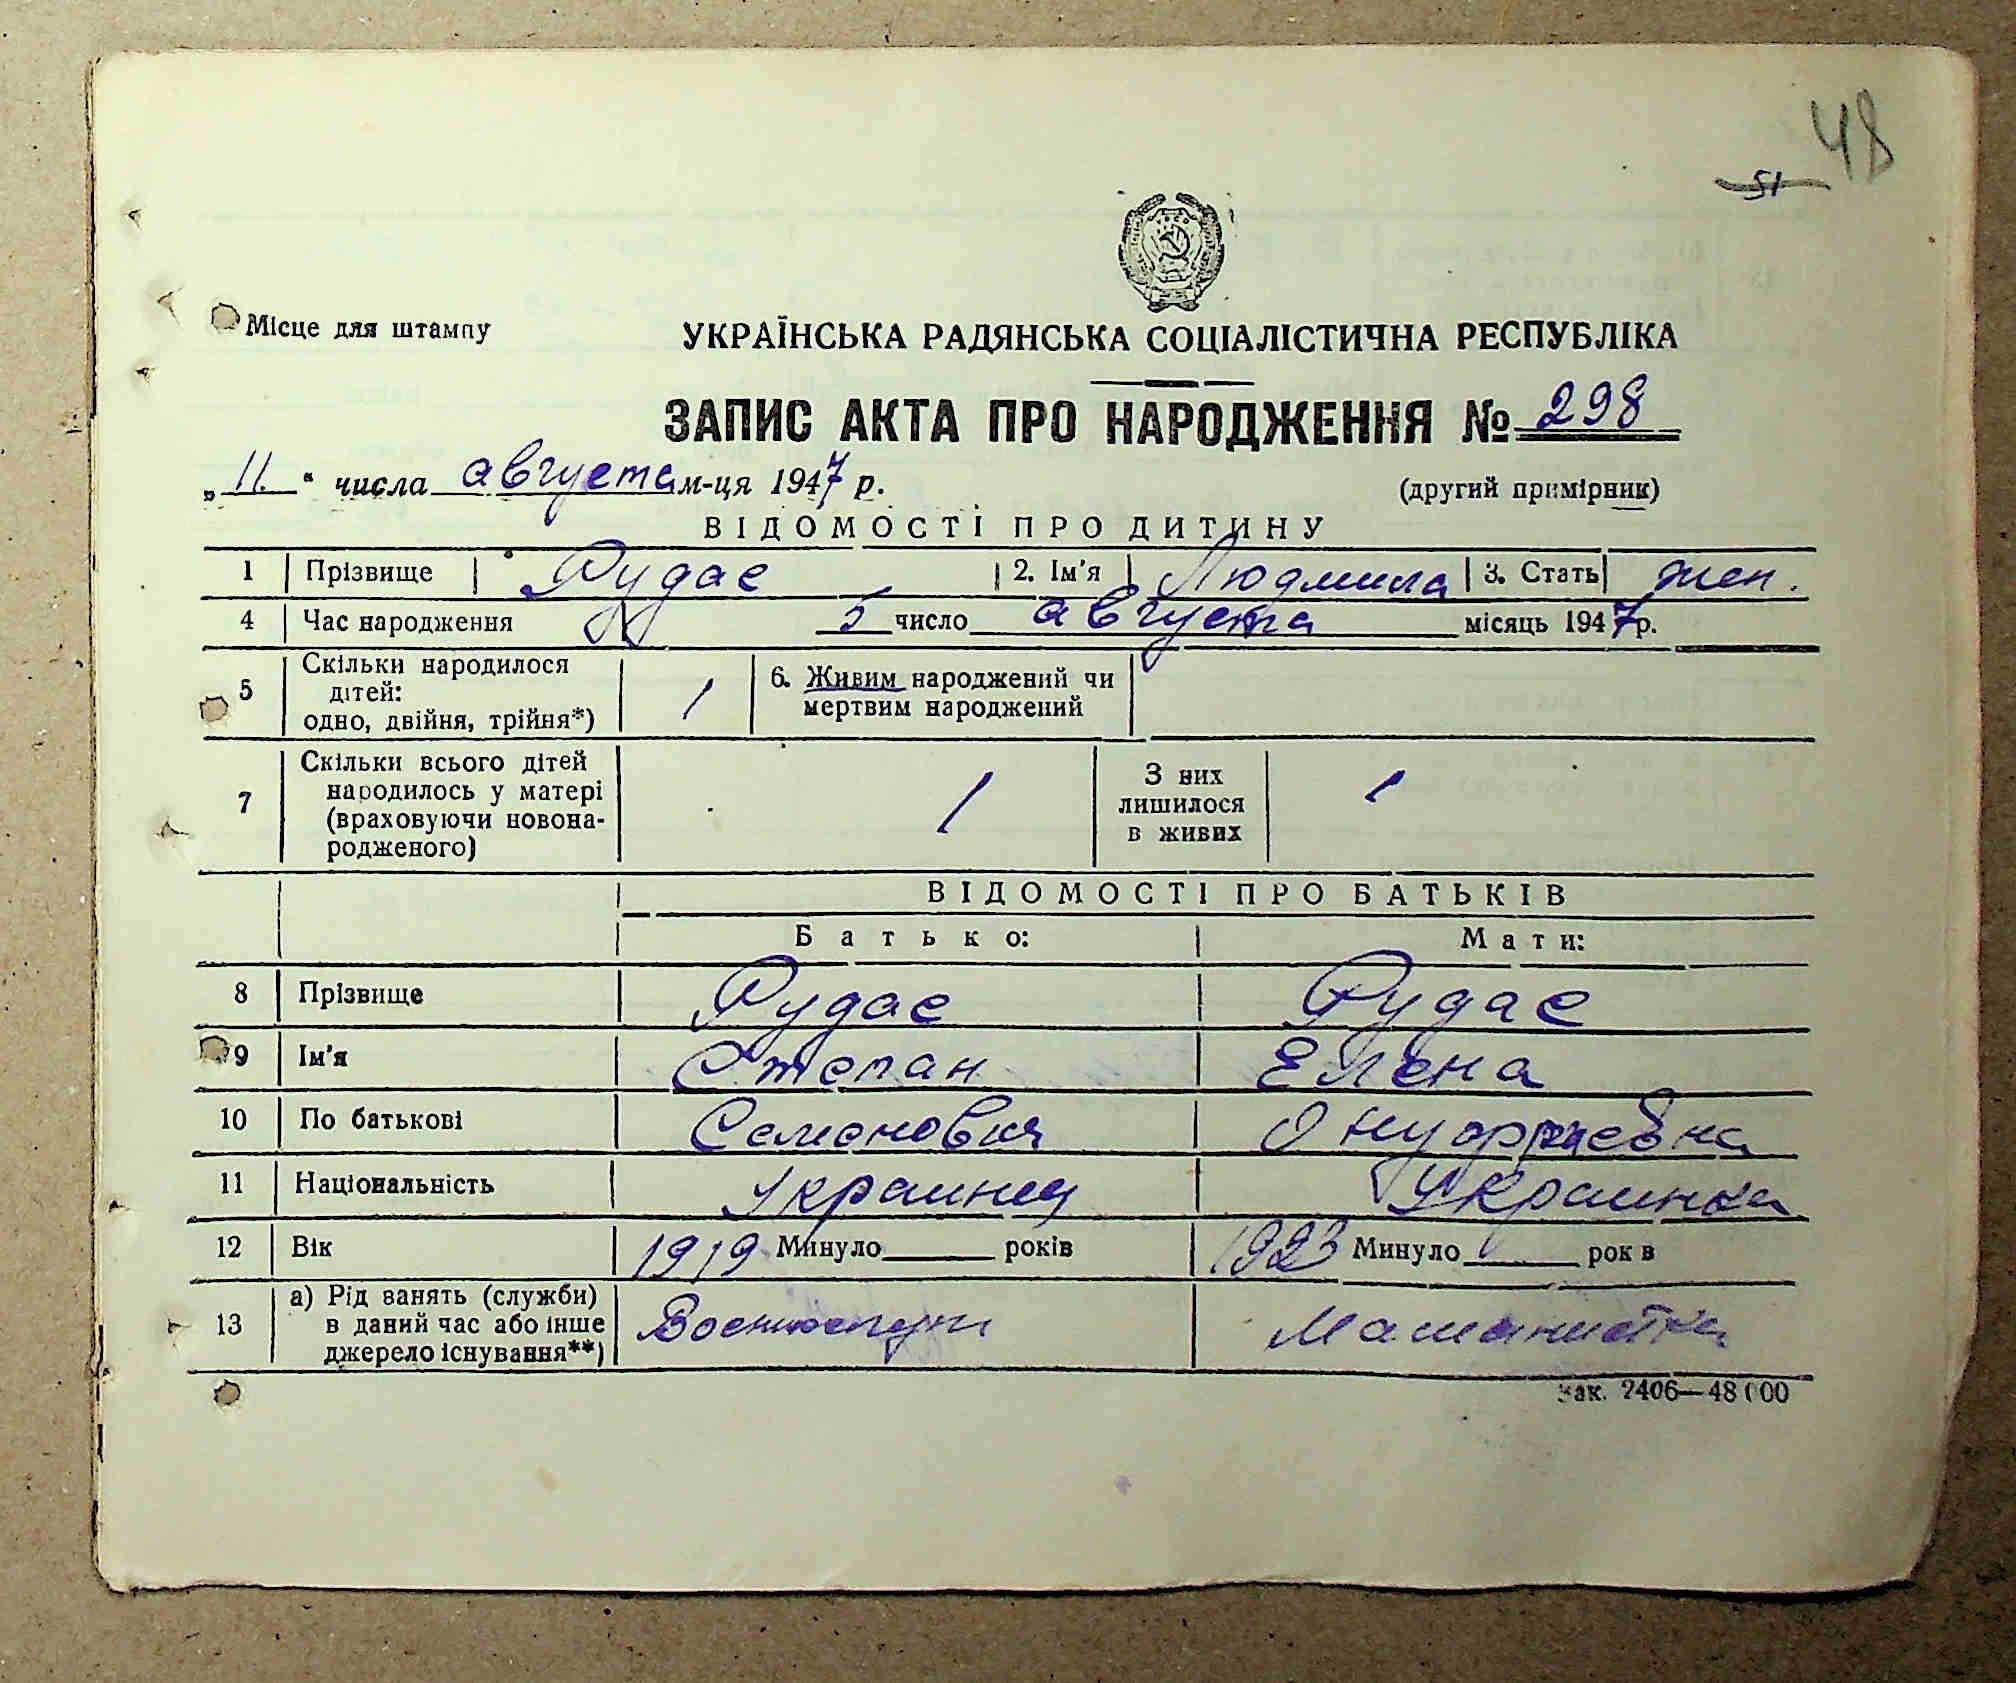 48
51
Місце для штампу
УКРАЇНСЬКА РАДЯНСЬКА СОЦІАЛІСТИЧНА РЕСПУБЛІКА
ЗАПИС АКТА ПРО НАРОДЖЕННЯ № 298
„11.“ числа августа м-ця 1947 р. (другий примірник)
ВІДОМОСТІ ПРО ДИТИНУ
1 Прізвище Рудас 2. Ім'я Людмила 3. Стать жен.
4 Час народження 5 число августа місяць 1947 р.
5 Скільки народилося дітей: одно, двійня, трійня*) 1 6. Живим народжений чи мертвим народжений
7 Скільки всього дітей народилось у матері (враховуючи новонародженого) 1 З них лишилося в живих 1
ВІДОМОСТІ ПРО БАТЬКІВ
Батько: Мати:
8 Прізвище Рудас Рудас
9 Ім'я Степан Елена
10 По батькові Семенович Онуфриевна
11 Національність Украинец Украинка
12 Вік 1919 Минуло років 1923 Минуло рок в
13 а) Рід занять (служби) в даний час або інше джерело існування**) Военнослуж Машинистка
Зак. 2406—48000